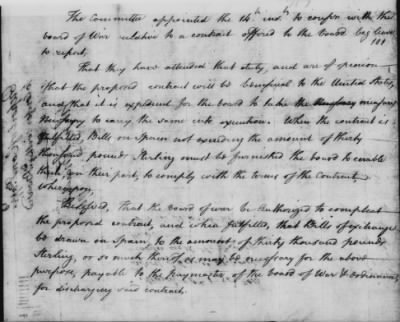 The Committee appointed the 14th inst. to confer with the
board of War relative to a contract offered to the board beg leave
to report,
That they have attended that duty, and are of opinion
that the proposed contract will be beneficial to the United States,
and that it is expedient for the board to take the necessary measures
necessary to carry the same into execution. When the contract is
fulfilled Bills on Spain not exceeding the amount of thirty
thousand pounds Sterling must be furnished the board to enable
them on their part, to comply with the terms of the Contract,
whereupon,
Resolved, That the board of war be authorized to compleat
the proposed contract, and when fulfilled, that Bills of exchange
be drawn on Spain to the amount of thirty thousand pounds
Sterling, or so much thereof as may be necessary for the above
purpose, payable to the paymaster of the board of War & ordinance,
for discharging said contract.